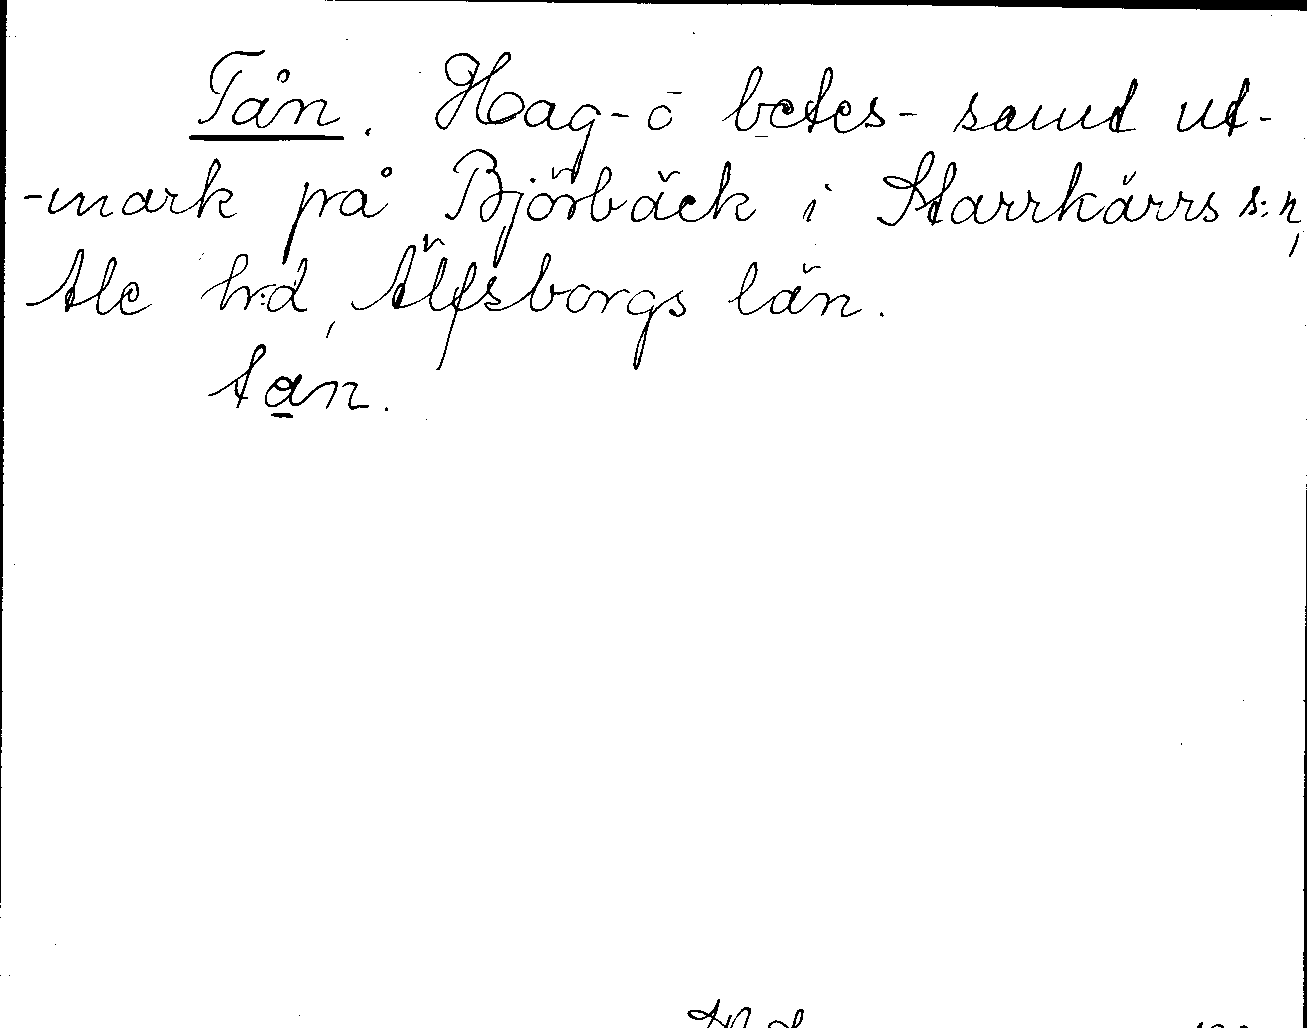 Tån. Hag- o betes- samt ut-
-mark på Björbäck i Starrkärrs s:n,
Ale h:d, Älfsborgs län.
tan.